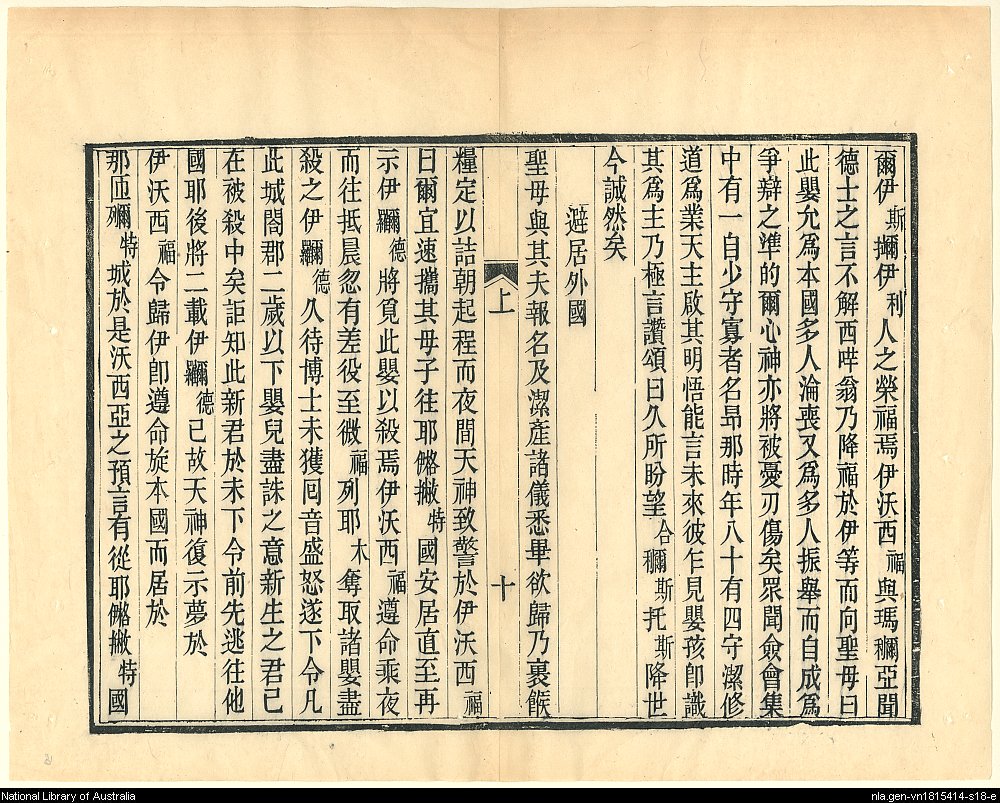 爾伊斯攡伊利人之榮福焉伊沃西福與瑪穪亞聞
德士之言不解西哶翁乃降福於伊等而向聖母曰
此嬰允爲本國多人淪喪又爲多人振舉而自成爲
爭辯之準的爾心神亦將被憂刃傷矣眾聞僉會集
中有一自少守寡者名昻那時年八十有四守潔修
道爲業天主啟其明悟能言未來彼乍見嬰孩卽識
其爲主乃極言讚頌曰久所盼望合穪斯托斯降世
今誠然矣
避居外國
聖母與其夫報名及潔產諸儀悉畢欲歸乃裹餱
上
十
糧定以詰朝起程而夜間天神致警於伊沃西福
曰爾宜速攜其母子往耶𠌥撇特國安居直至再
示伊囉德將覓此嬰以殺焉伊沃西福遵命乘夜
而往抵晨忽有差役至微福列耶木奪取諸嬰盡
殺之伊囉德久待博士未獲囘音盛怒遂下令凡
此城閤郡二歲以下嬰兒盡誅之意新生之君已
在被殺中矣詎知此新君於未下令前先逃往他
國耶後將二載伊囉德已故天神復示夢於
伊沃西福令歸伊卽遵命旋本國而居於
那匝穪特城於是沃西亞之預言有從耶𠌥撇特國
National Library of Australia
nla.gen-vn1815414-s18-e